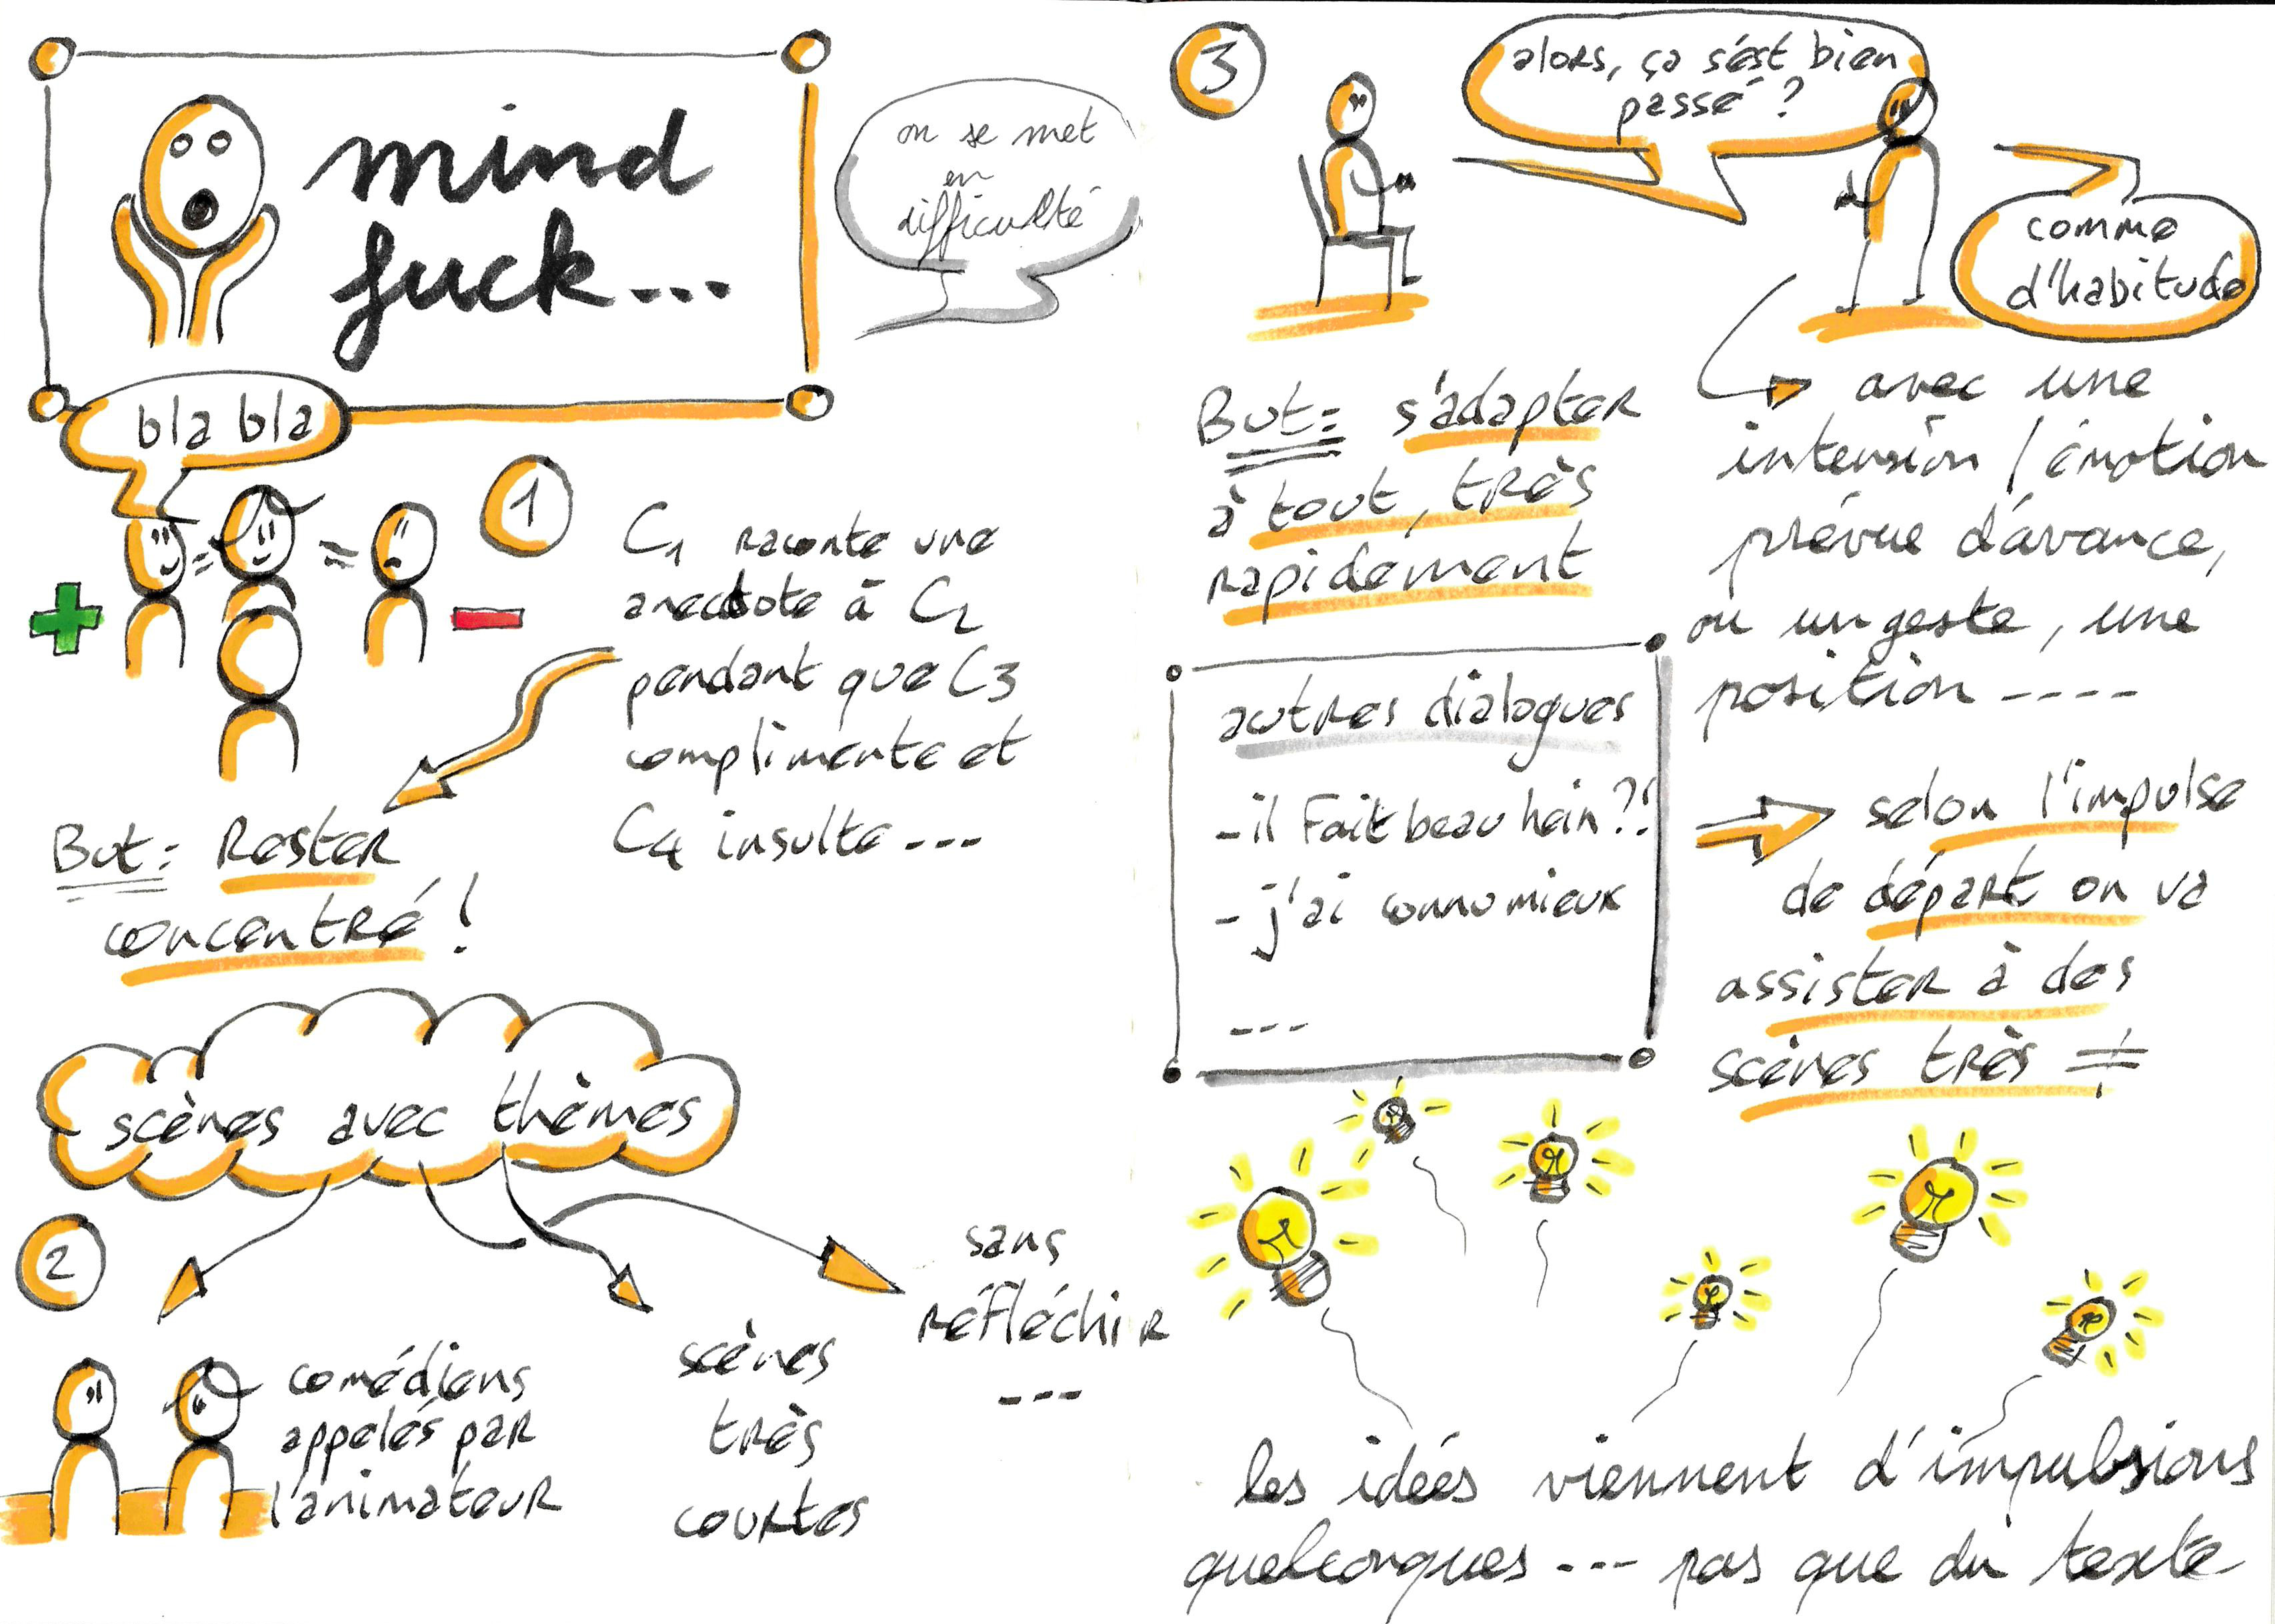 mind
fuck...
on se met
en
difficulté
bla bla
1
C1 raconte une
anecdote à C2
pendant que C3
complimente et
C4 insulte ---
But : Rester
concentré !
scènes avec thèmes
2
comédiens
appelés par
l'animateur
scènes
très
courtes
sans
réfléchir
---
3
alors, ça s'est bien
passé ?
comme
d'habitude
But : s'adapter
à tout, très
rapidement
avec une
intension / émotion
prévue d'avance,
ou un geste, une
position ----
autres dialogues
- il Fait beau hein ?!
- j'ai connu mieux
---
selon l'impulse
de départ on va
assister à des
scènes très ≠
les idées viennent d'impulsions
quelconques --- pas que du texte